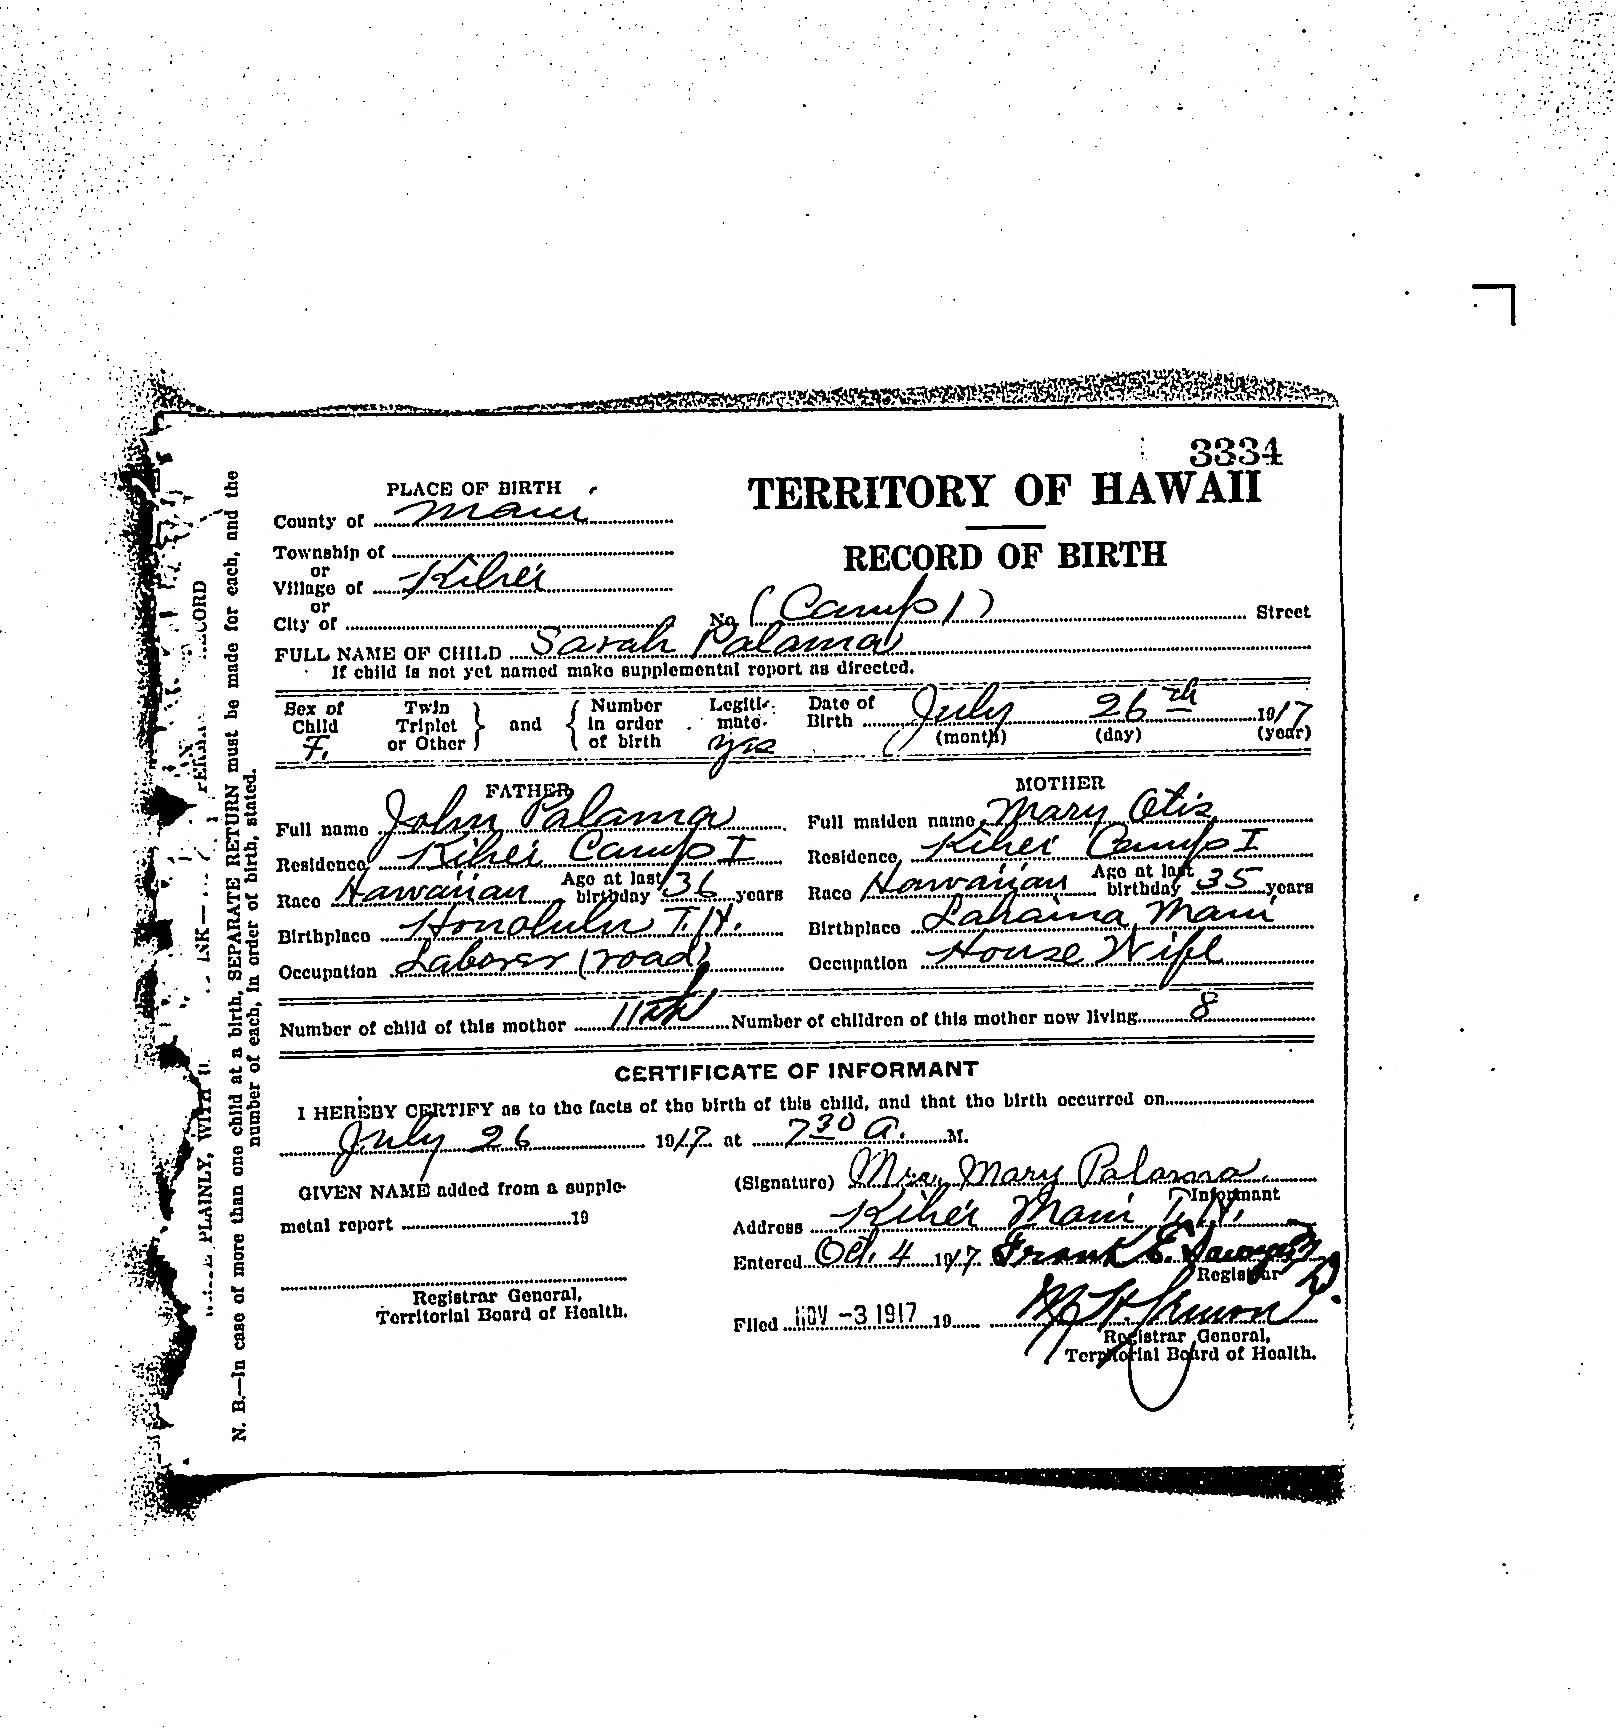 3334
TERRITORY OF HAWAII
RECORD OF BIRTH
PLACE OF BIRTH
County of Maui
Township of
or
Village of Kihei
or
City of No. (Camp 1) Street
FULL NAME OF CHILD Sarah Palama
If child is not yet named make supplemental report as directed.
Sex of Child F. Twin Triplet or Other } and { Number in order of birth Legiti- mate- yes Date of Birth July 26th 1917
(month) (day) (year)
FATHER
Full name John Palama
Residence Kihei Camp I
Race Hawaiian Age at last birthday 36 years
Birthplace Honolulu T.H.
Occupation Laborer (road)
MOTHER
Full maiden name Mary Otis
Residence Kihei Camp I
Race Hawaiian Age at last birthday 35 years
Birthplace Lahaina Maui
Occupation House Wife
Number of child of this mother 11th Number of children of this mother now living 8
CERTIFICATE OF INFORMANT
I HEREBY CERTIFY as to the facts of the birth of this child, and that the birth occurred on
July 26 1917 at 7 30 A. M.
GIVEN NAME added from a supple-
metal report 19
Registrar General,
Territorial Board of Health.
(Signature) Mrs. Mary Palama
Informant
Address Kihei Maui T.H.
Entered Oct. 4 1917 Frank E.
Registrar
Filed NOV -3 1917 19
Registrar General,
Territorial Board of Health.
PLAINLY, WITH INK— RECORD
N. B.—In case of more than one child at a birth, SEPARATE RETURN must be made for each, and the
number of each, in order of birth, stated.